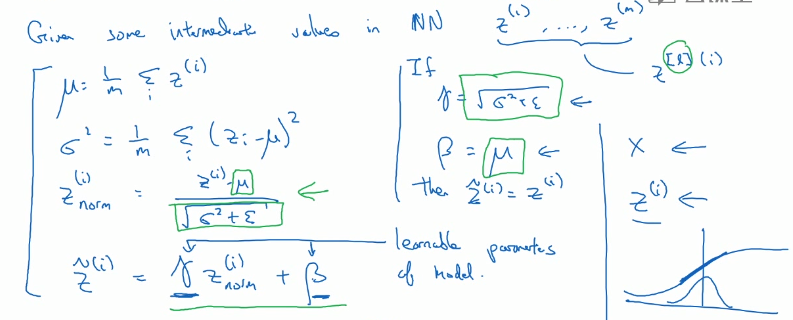 Given some intermediate values in NN z^(1), ..., z^(m)
z^[l](i)
μ = 1/m Σ_i z^(i)
σ² = 1/m Σ_i (z_i - μ)²
z_norm^(i) = (z^(i) - μ) / √(σ² + ε) ←
z̃^(i) = γ z_norm^(i) + β
learnable parameters
of model.
If
γ = √(σ² + ε) ←
β = μ ←
then z̃^(i) = z^(i)
X ←
z^(i) ←